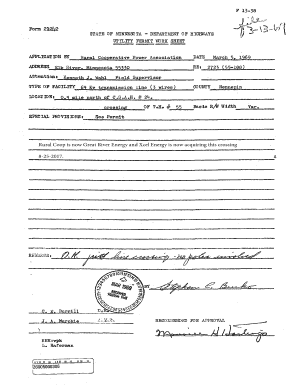 F 13-58
file
3-13-69
Form 2525-2
STATE OF MINNESOTA - DEPARTMENT OF HIGHWAYS
UTILITY PERMIT WORK SHEET
APPLICATION BY Rural Cooperative Power Association DATE March 5, 1969
ADDRESS Elk River, Minnesota 55330 RE: 2725 (55-188)
Attention: Kenneth J. Wahl Field Supervisor
TYPE OF FACILITY 69 Kv transmission line (3 wires) COUNTY Hennepin
LOCATION: 0.4 mile north of C.S.A.H. # 24
crossing OF T.H. # 55 Basic R/W Width Var.
SPECIAL PROVISIONS: See Permit
Rural Coop is now Great River Energy and Xcel Energy is now acquiring this crossing
8-25-2017.
REMARKS: O.K. just line crossing - no poles involved
BY
RECOMMENDED FOR APPROVAL